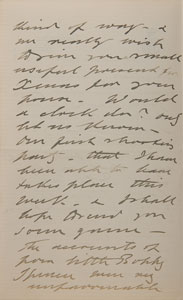 kind of way - &
am really wish
to give you small
useful present for
Xmas for your
room. Would
a clock do? only
let us know -
Our first shooting
party - that I have
been able to have
takes place this
week. & I shall
hope to send you
some game -
the accounts of
poor little Bobby
Spencer
unfavourable